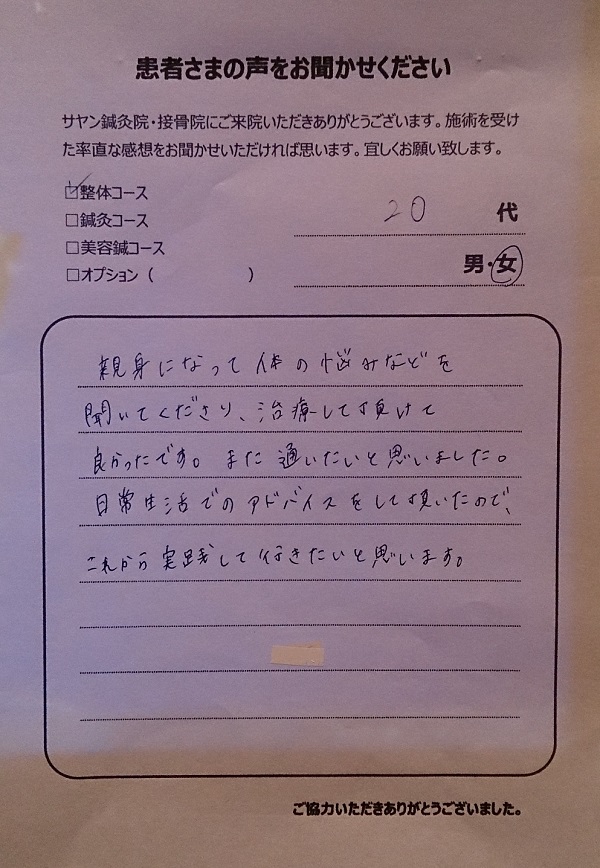 患者さまの声をお聞かせください
サヤン鍼灸院・接骨院にご来院いただきありがとうございます。施術を受け
た率直な感想をお聞かせいただければ思います。宜しくお願い致します。
☑整体コース
□鍼灸コース
□美容鍼コース
□オプション（　　　　　　）
20 代
男・女
親身になって体の悩みなどを
聞いてくださり、治療して頂けて
良かったです。また通いたいと思いました。
日常生活でのアドバイスをして頂いたので、
これから実践して行きたいと思います。
ご協力いただきありがとうございました。